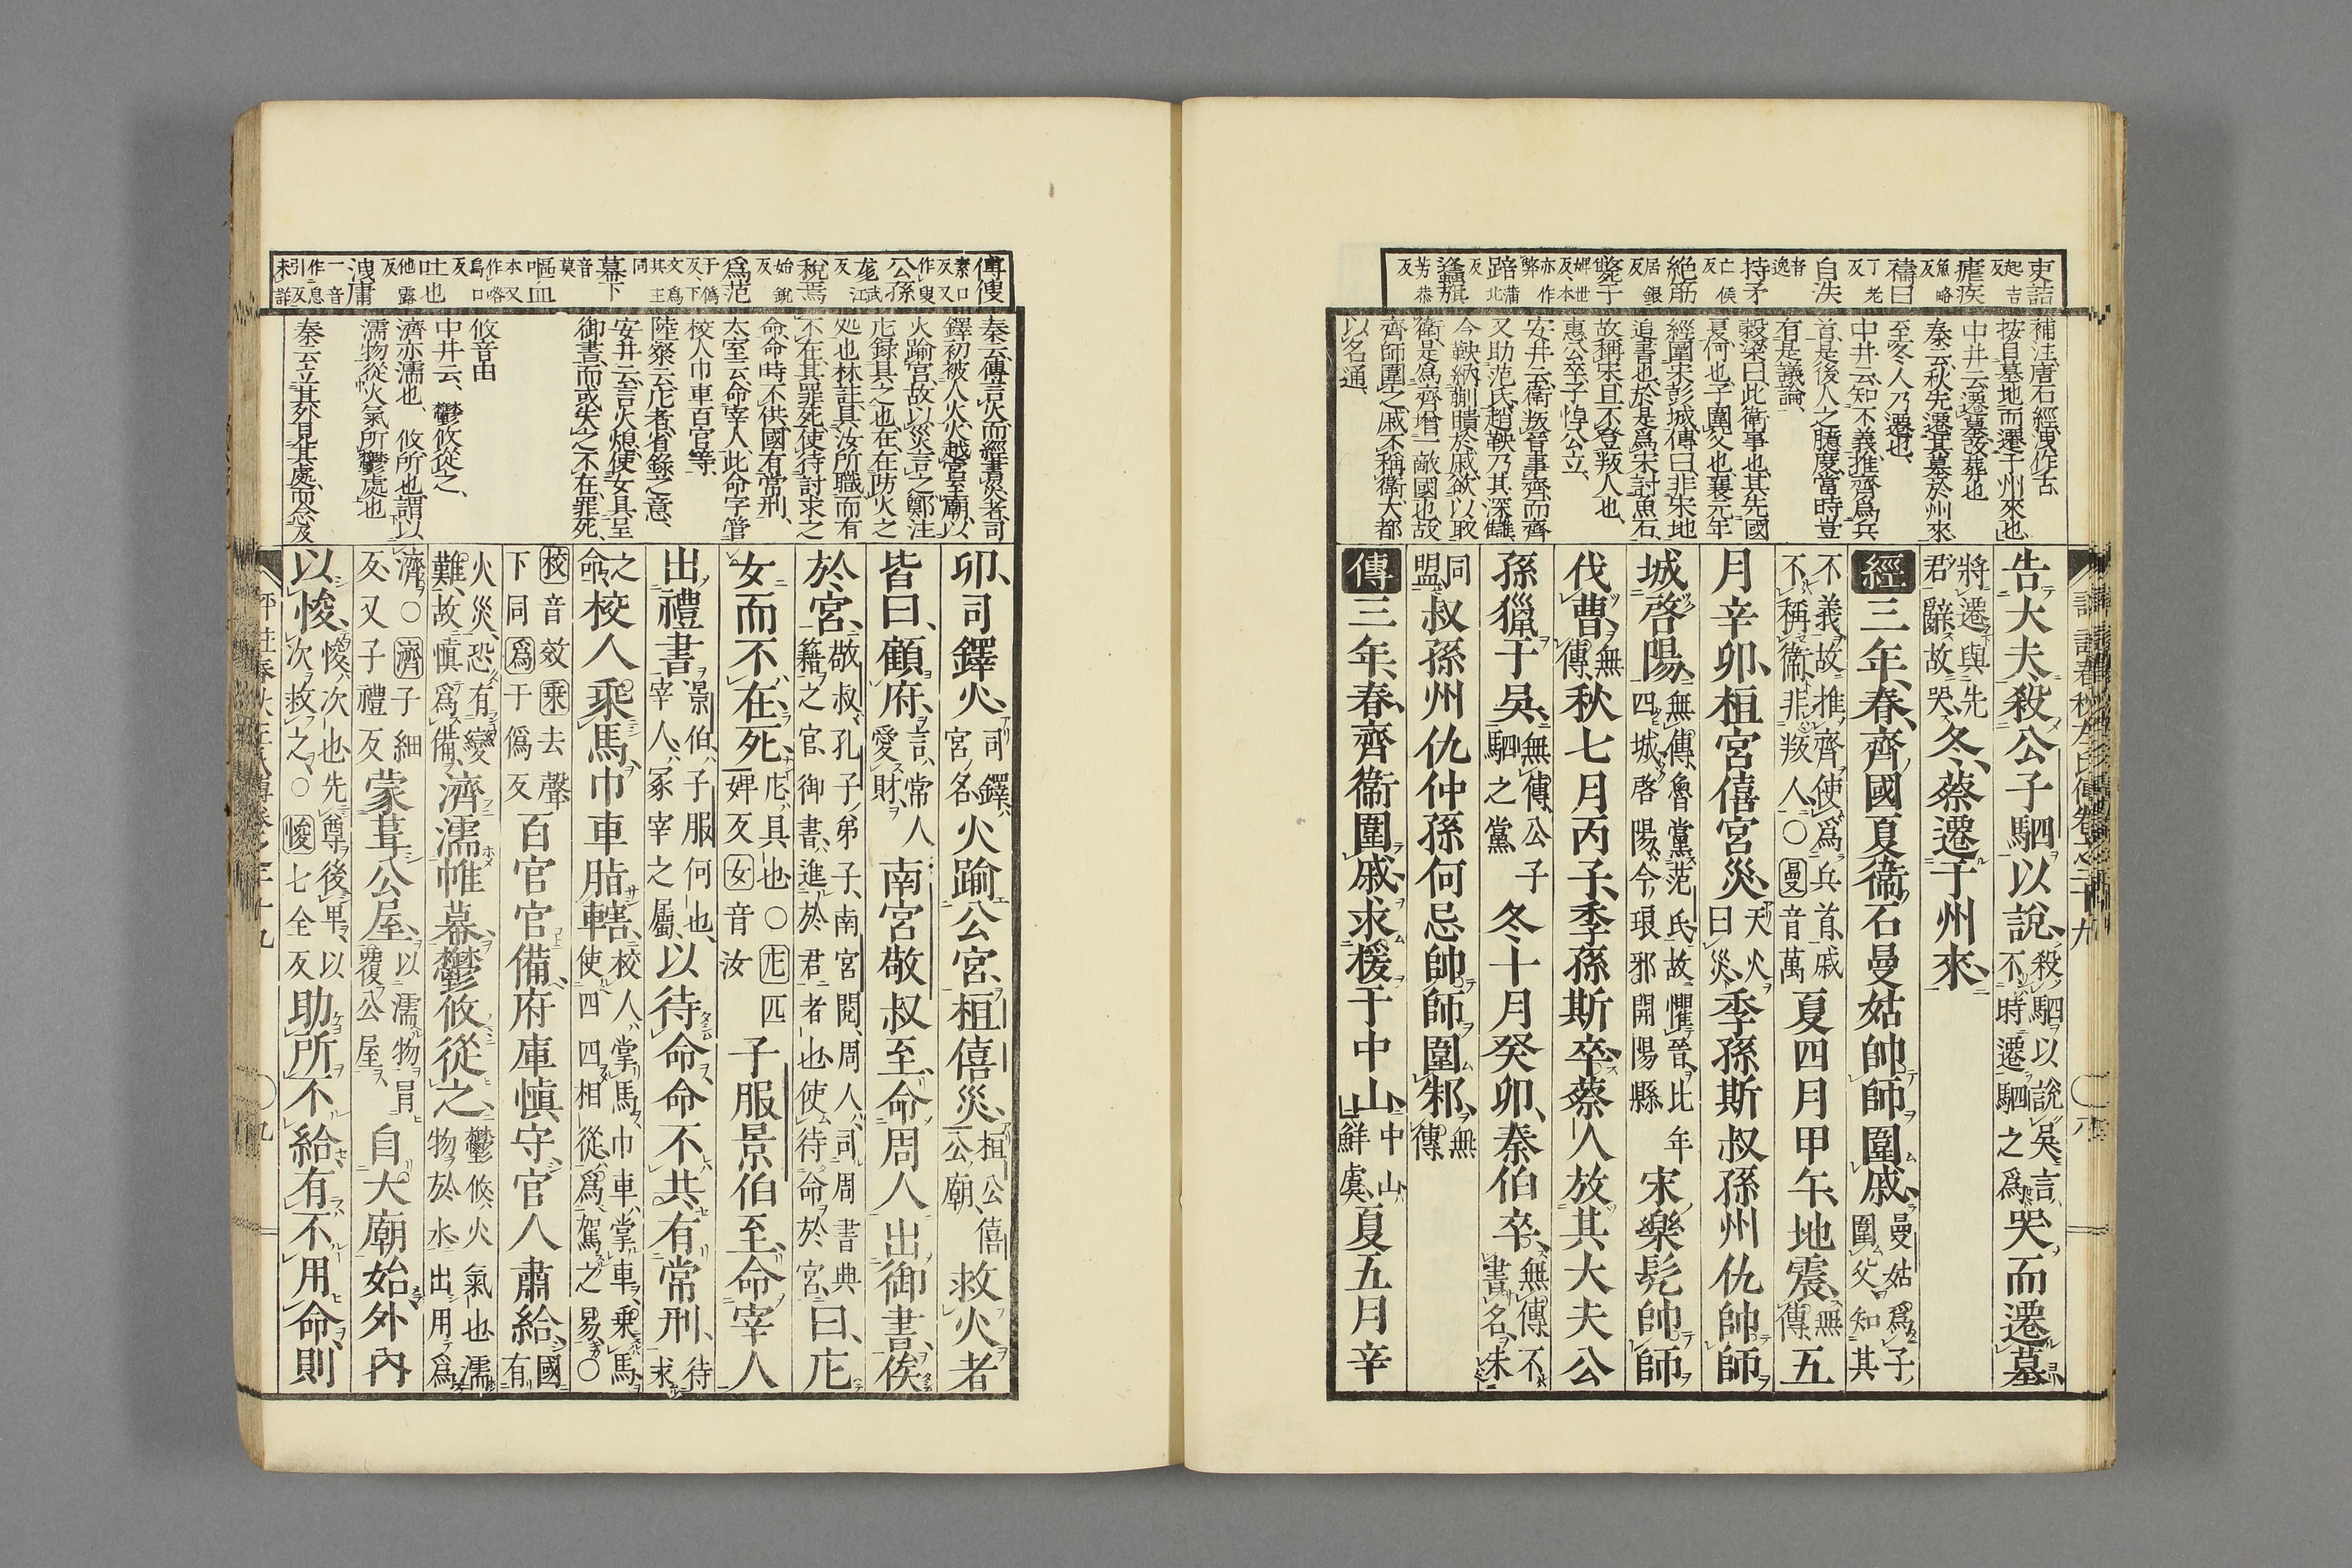 吏詰起吉反
瘧疾魚略反
禱曰丁老反
自泆音逸
持矛亡侯反
絶筋居銀反
斃于婢世反本亦作弊
踣蒲北反
蠭旗芳恭反
補注唐石經洩作古
按自墓地而遷于州來也
中井云遷墓改葬也
秦云秋先遷其墓於州來
至冬人乃遷也
中井云知不義推齊爲兵
首是後人之臆度當時豈
有是議論
穀梁曰此衞事也其先國
夏何也子圍父也襄元年
經圍宋彭城傳曰非宋地
追書也於是爲宋討魚石
故稱宋且不登叛人也
惠公卒子悼公立
安井云衞叛晉事齊而齊
又助范氏趙鞅乃其深讎
今鞅納蒯聵於戚欲以取
衞是爲齊增一敵國也故
齊師圍之戚不稱衞大都
以名通
告大夫殺公子駟以說殺駟以說吳言不時遷駟之爲哭而遷墓
將遷與先君辭故哭冬蔡遷于州來
經三年春齊國夏衞石曼姑帥師圍戚曼姑爲子圍父知其
不義故推齊使爲兵首戚不稱衞非叛人○曼音萬夏四月甲午地震無傳五
月辛卯桓宮僖宮災天火曰災季孫斯叔孫州仇帥師
城啓陽無傳魯黨范氏故懼晉比年四城啓陽今琅邪開陽縣宋樂髡帥師
伐曹無傳秋七月丙子季孫斯卒蔡人放其大夫公
孫獵于吳無傳公子駟之黨冬十月癸卯秦伯卒無傳不書名未
同盟叔孫州仇仲孫何忌帥師圍邾無傳
傳三年春齊衞圍戚求援于中山中山鮮虞夏五月辛
傅傁素口反又作叟
公孫尨武江反
稅焉始銳反
爲范于僞反下文爲其主同
幕下音莫
嘔血本又作咯烏口反
吐也他露反
洩庸一音作息引反未詳
秦云傳言火而經書災者司
鐸初被人火火越宮至廟以
火踰宮故以災言之鄭注
庀錄具之也在在防火之
処也林註具汝所職而有
不在其罪死使待討求之
命命時不供國有常刑
太室云命宰人此命字管
校人巾車百官等
陸粲云庀者省錄之意
安井云言火熄使女具呈
御書而或失之不在罪死
攸音由
中井云鬱攸從之
濟亦濡也攸所也謂以
濡物從火氣所鬱處也
秦云立其外見其處而念及
卯司鐸火司鐸宮名火踰公宮桓僖災桓公僖公廟救火者
皆曰顧府言常人愛財南宮敬叔至命周人出御書俟
於宮敬叔孔子弟子南宮閱周人司周書典籍之官御書進於君者也使待命於宮曰庀
女而不在死庀具也○庀匹婢反女音汝子服景伯至命宰人
出禮書景伯子服何也宰人冢宰之屬以待命命不共有常刑待求
之命校人乘馬巾車脂轄校人掌馬巾車掌車乘馬使四四相從爲駕之易○
校音效乘去聲下同爲于僞反百官官備府庫愼守官人肅給國有
火災恐有變難故愼爲備濟濡帷幕鬱攸從之鬱攸火氣也濡物於水出用爲
濟○濟子細反又子禮反蒙葺公屋以濡物冒覆公屋自大廟始外內
以悛悛次也先尊後卑以次救之○悛七全反助所不給有不用命則